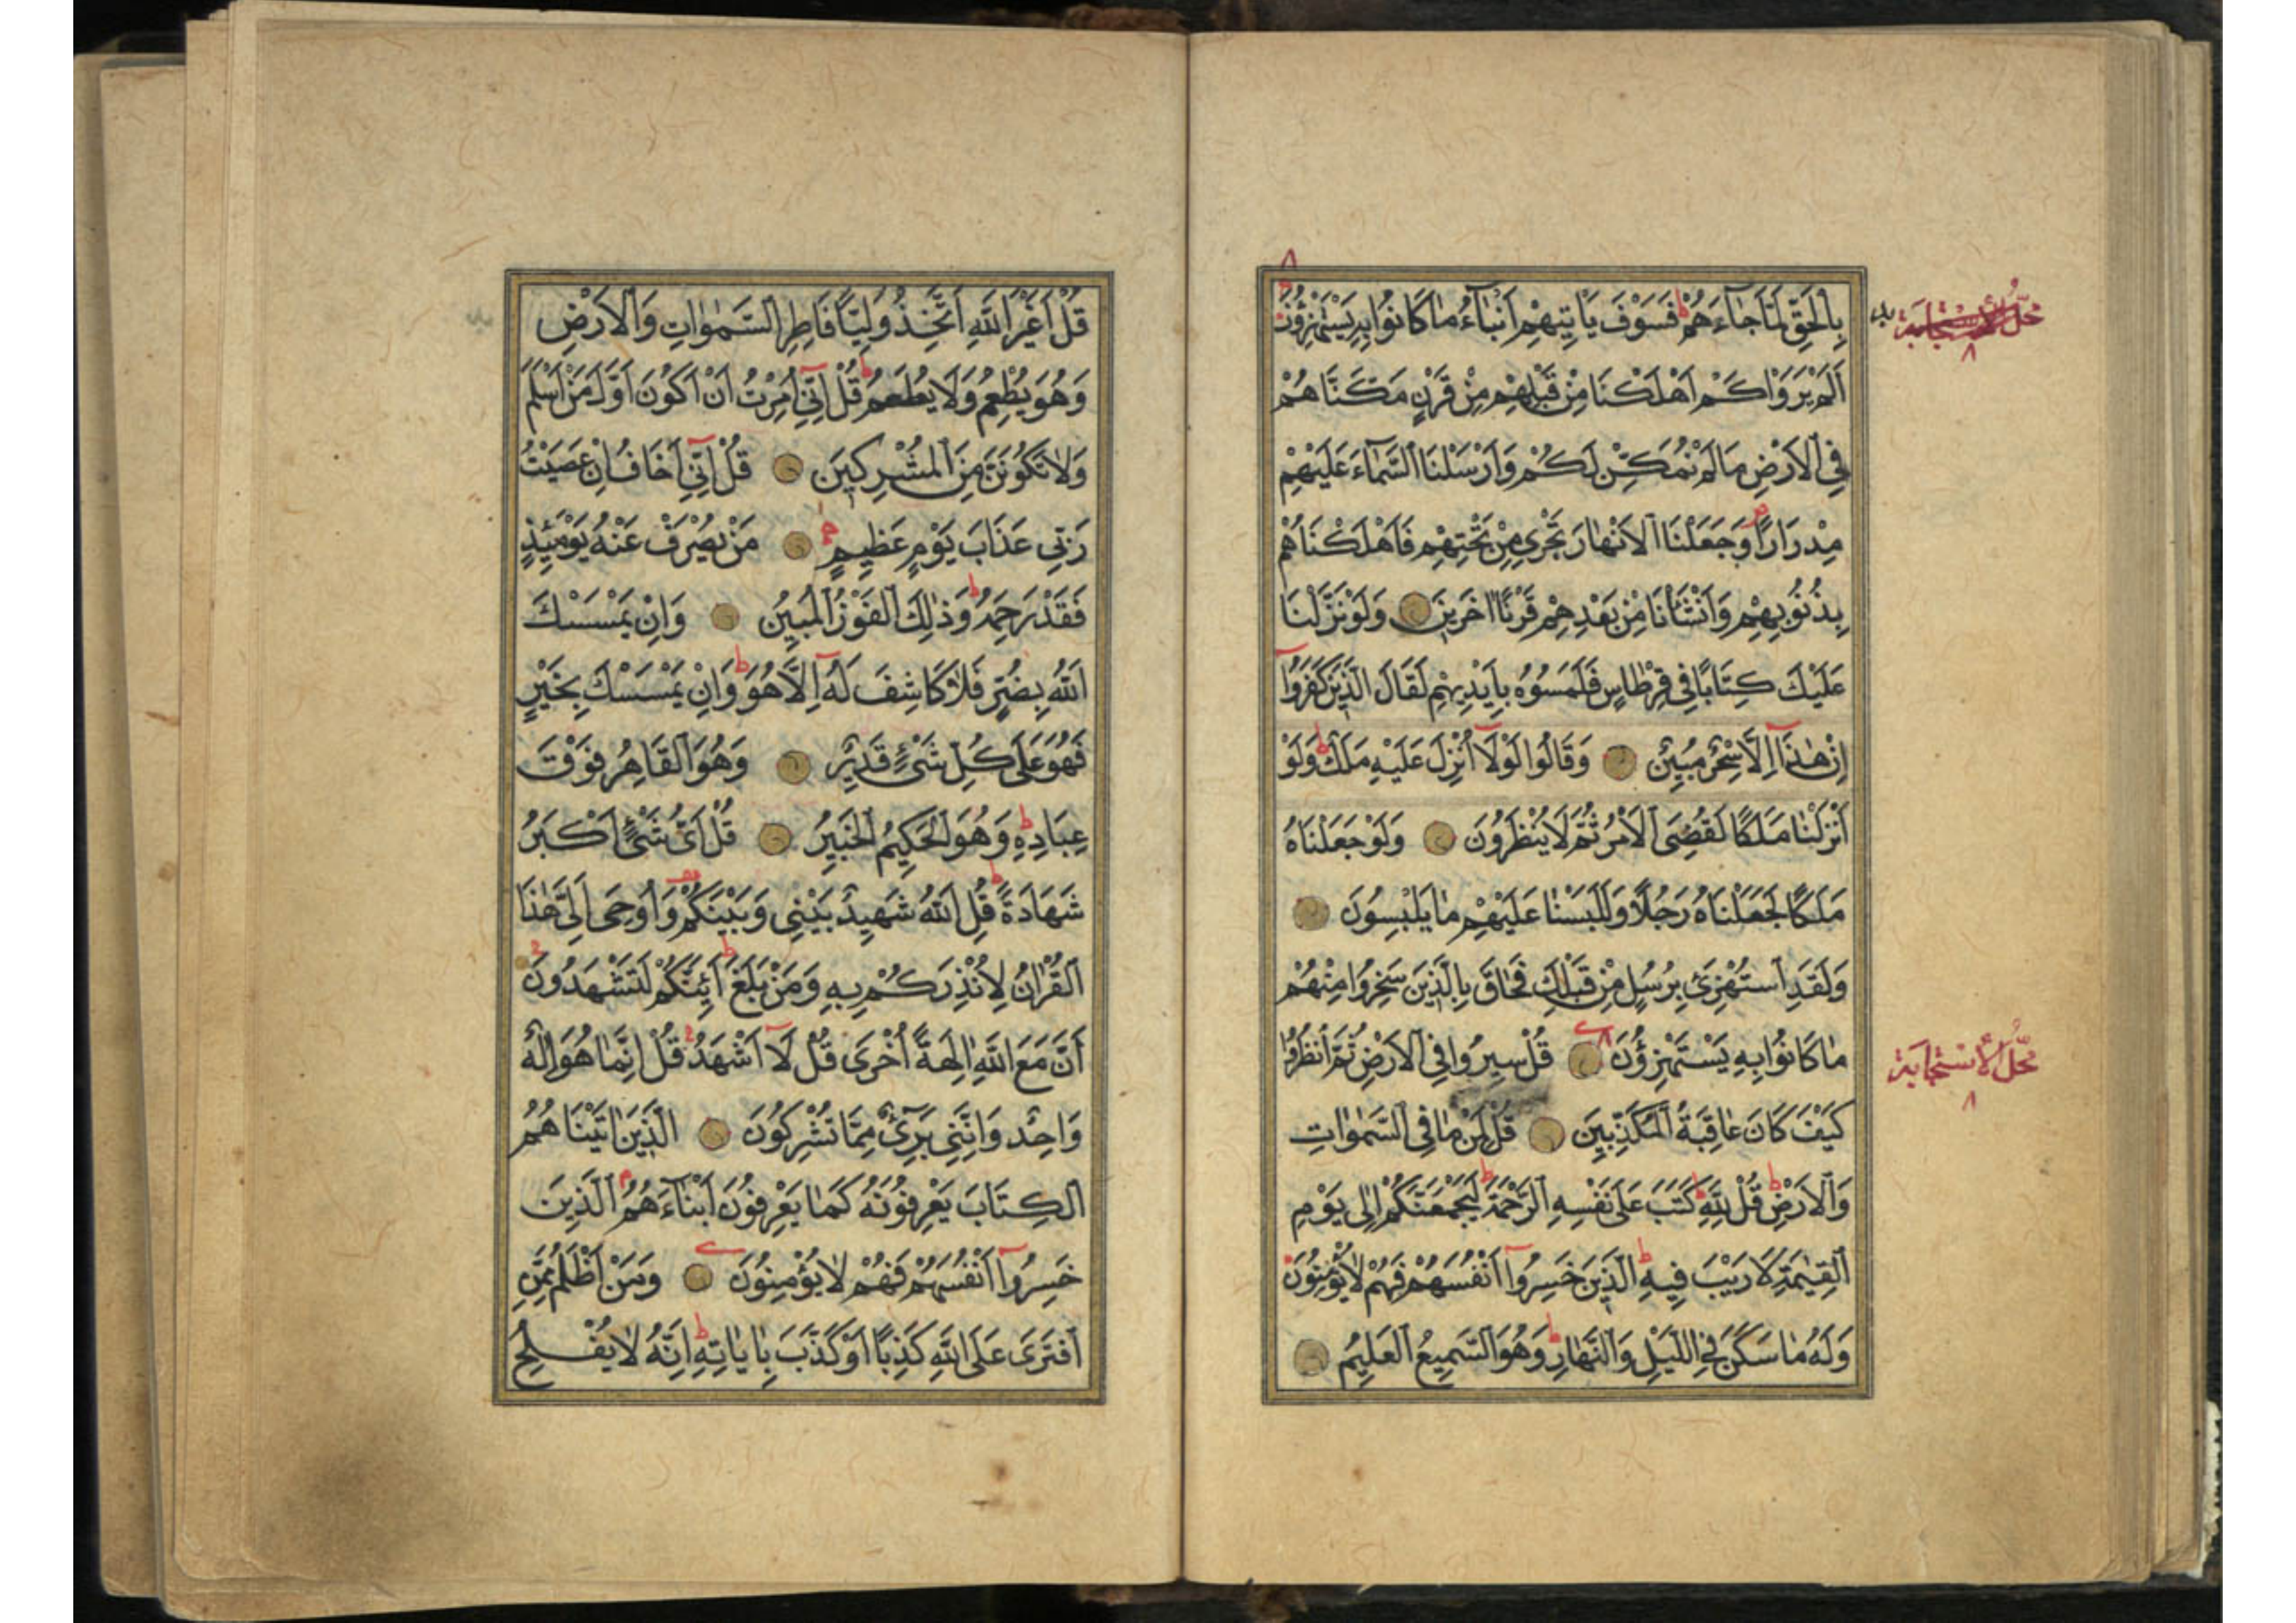 بِالْحَقِّ لَمَّا جَاءَهُمْ فَسَوْفَ يَأْتِيهِمْ أَنْبَاءُ مَا كَانُوا بِهِ يَسْتَهْزِؤُنَ
اَلَمْ يَرَوْا كَمْ اَهْلَكْنَا مِنْ قَبْلِهِمْ مِنْ قَرْنٍ مَكَّنَّاهُمْ
فِي الْاَرْضِ مَا لَمْ نُمَكِّنْ لَكُمْ وَاَرْسَلْنَا السَّمَاءَ عَلَيْهِمْ
مِدْرَارًا وَجَعَلْنَا الْاَنْهَارَ تَجْرِي مِنْ تَحْتِهِمْ فَاَهْلَكْنَاهُمْ
بِذُنُوبِهِمْ وَاَنْشَأْنَا مِنْ بَعْدِهِمْ قَرْنًا اٰخَرِينَ وَلَوْ نَزَّلْنَا
عَلَيْكَ كِتَابًا فِي قِرْطَاسٍ فَلَمَسُوهُ بِاَيْدِيهِمْ لَقَالَ الَّذِينَ كَفَرُوا
اِنْ هٰذَا اِلَّا سِحْرٌ مُبِينٌ وَقَالُوا لَوْلَا اُنْزِلَ عَلَيْهِ مَلَكٌ وَلَوْ
اَنْزَلْنَا مَلَكًا لَقُضِيَ الْاَمْرُ ثُمَّ لَا يُنْظَرُونَ وَلَوْ جَعَلْنَاهُ
مَلَكًا لَجَعَلْنَاهُ رَجُلًا وَلَلَبَسْنَا عَلَيْهِمْ مَا يَلْبِسُونَ
وَلَقَدِ اسْتُهْزِئَ بِرُسُلٍ مِنْ قَبْلِكَ فَحَاقَ بِالَّذِينَ سَخِرُوا مِنْهُمْ
مَا كَانُوا بِهِ يَسْتَهْزِؤُنَ قُلْ سِيرُوا فِي الْاَرْضِ ثُمَّ انْظُرُوا
كَيْفَ كَانَ عَاقِبَةُ الْمُكَذِّبِينَ قُلْ لِمَنْ مَا فِي السَّمٰوَاتِ
وَالْاَرْضِ قُلْ لِلّٰهِ كَتَبَ عَلٰى نَفْسِهِ الرَّحْمَةَ لَيَجْمَعَنَّكُمْ اِلٰى يَوْمِ
الْقِيٰمَةِ لَا رَيْبَ فِيهِ الَّذِينَ خَسِرُوا اَنْفُسَهُمْ فَهُمْ لَا يُؤْمِنُونَ
وَلَهُ مَا سَكَنَ فِي اللَّيْلِ وَالنَّهَارِ وَهُوَ السَّمِيعُ الْعَلِيمُ
مَحَلُّ الْاِسْتِجَابَة
٨
مَحَلُّ الْاِسْتِجَابَة
٨
قُلْ اَغَيْرَ اللّٰهِ اَتَّخِذُ وَلِيًّا فَاطِرِ السَّمٰوَاتِ وَالْاَرْضِ
وَهُوَ يُطْعِمُ وَلَا يُطْعَمُ قُلْ اِنِّي اُمِرْتُ اَنْ اَكُونَ اَوَّلَ مَنْ اَسْلَمَ
وَلَا تَكُونَنَّ مِنَ الْمُشْرِكِينَ قُلْ اِنِّي اَخَافُ اِنْ عَصَيْتُ
رَبِّي عَذَابَ يَوْمٍ عَظِيمٍ مَنْ يُصْرَفْ عَنْهُ يَوْمَئِذٍ
فَقَدْ رَحِمَهُ وَذٰلِكَ الْفَوْزُ الْمُبِينُ وَاِنْ يَمْسَسْكَ
اللّٰهُ بِضُرٍّ فَلَا كَاشِفَ لَهُ اِلَّا هُوَ وَاِنْ يَمْسَسْكَ بِخَيْرٍ
فَهُوَ عَلٰى كُلِّ شَيْءٍ قَدِيرٌ وَهُوَ الْقَاهِرُ فَوْقَ
عِبَادِهِ وَهُوَ الْحَكِيمُ الْخَبِيرُ قُلْ اَيُّ شَيْءٍ اَكْبَرُ
شَهَادَةً قُلِ اللّٰهُ شَهِيدٌ بَيْنِي وَبَيْنَكُمْ وَاُوحِيَ اِلَيَّ هٰذَا
الْقُرْاٰنُ لِاُنْذِرَكُمْ بِهِ وَمَنْ بَلَغَ اَئِنَّكُمْ لَتَشْهَدُونَ
اَنَّ مَعَ اللّٰهِ اٰلِهَةً اُخْرٰى قُلْ لَا اَشْهَدُ قُلْ اِنَّمَا هُوَ اِلٰهٌ
وَاحِدٌ وَاِنَّنِي بَرِيءٌ مِمَّا تُشْرِكُونَ الَّذِينَ اٰتَيْنَاهُمُ
الْكِتَابَ يَعْرِفُونَهُ كَمَا يَعْرِفُونَ اَبْنَاءَهُمُ الَّذِينَ
خَسِرُوا اَنْفُسَهُمْ فَهُمْ لَا يُؤْمِنُونَ وَمَنْ اَظْلَمُ مِمَّنِ
افْتَرٰى عَلَى اللّٰهِ كَذِبًا اَوْ كَذَّبَ بِاٰيَاتِهِ اِنَّهُ لَا يُفْلِحُ